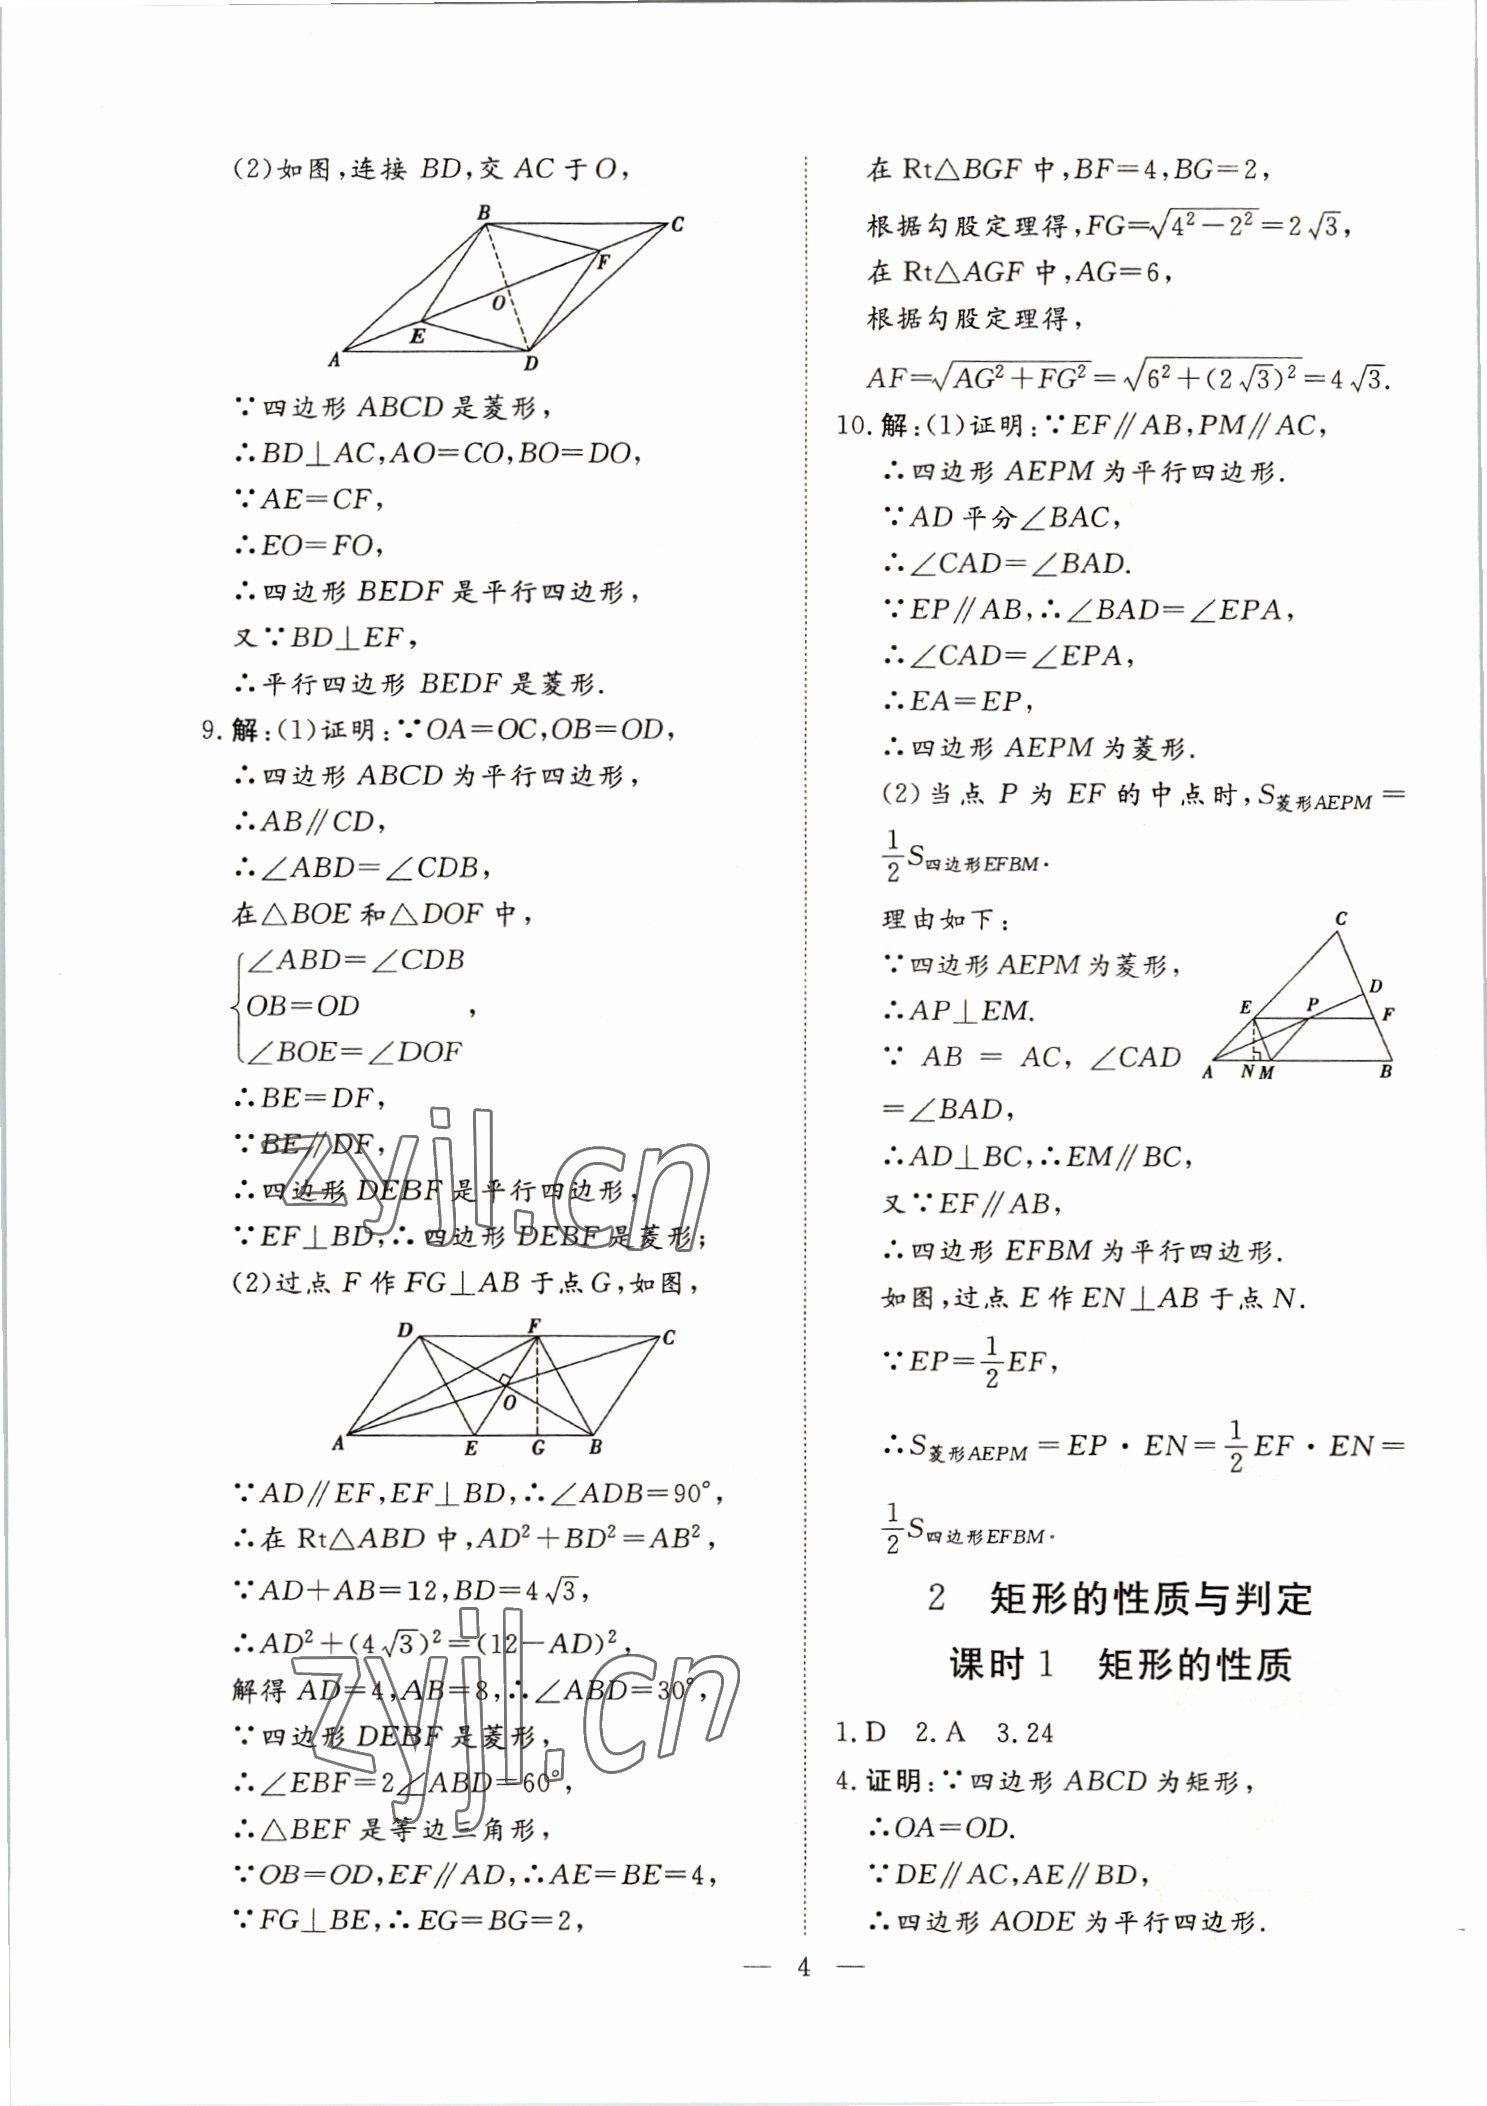 (2)如图,连接 BD,交 AC 于 O,
B
C
F
O
E
A
D
∵四边形 ABCD 是菱形,
∴BD⊥AC,AO=CO,BO=DO,
∵AE=CF,
∴EO=FO,
∴四边形 BEDF 是平行四边形,
又∵BD⊥EF,
∴平行四边形 BEDF 是菱形.
9.解:(1)证明:∵OA=OC,OB=OD,
∴四边形 ABCD 为平行四边形,
∴AB∥CD,
∴∠ABD=∠CDB,
在△BOE 和△DOF 中,
∠ABD=∠CDB
{OB=OD ,
∠BOE=∠DOF
∴BE=DF,
∵BE∥DF,
∴四边形 DEBF 是平行四边形,
∵EF⊥BD,∴四边形 DEBF 是菱形;
(2)过点 F 作 FG⊥AB 于点 G,如图,
D
F
C
O
A
E
G
B
∵AD∥EF,EF⊥BD,∴∠ADB=90°,
∴在 Rt△ABD 中,AD²+BD²=AB²,
∵AD+AB=12,BD=4√3,
∴AD²+(4√3)²=(12−AD)²,
解得 AD=4,AB=8,∴∠ABD=30°,
∵四边形 DEBF 是菱形,
∴∠EBF=2∠ABD=60°,
∴△BEF 是等边三角形,
∵OB=OD,EF∥AD,∴AE=BE=4,
∵FG⊥BE,∴EG=BG=2,
在 Rt△BGF 中,BF=4,BG=2,
根据勾股定理得,FG=√(4²−2²)=2√3,
在 Rt△AGF 中,AG=6,
根据勾股定理得,
AF=√(AG²+FG²)=√(6²+(2√3)²)=4√3.
10.解:(1)证明:∵EF∥AB,PM∥AC,
∴四边形 AEPM 为平行四边形.
∵AD 平分∠BAC,
∴∠CAD=∠BAD.
∵EP∥AB,∴∠BAD=∠EPA,
∴∠CAD=∠EPA,
∴EA=EP,
∴四边形 AEPM 为菱形.
(2)当点 P 为 EF 的中点时,S菱形AEPM=
1/2 S四边形EFBM.
理由如下:
∵四边形 AEPM 为菱形,
∴AP⊥EM.
∵ AB = AC, ∠CAD
=∠BAD,
C
D
E
P
F
A
N
M
B
∴AD⊥BC,∴EM∥BC,
又∵EF∥AB,
∴四边形 EFBM 为平行四边形.
如图,过点 E 作 EN⊥AB 于点 N.
∵EP=1/2 EF,
∴S菱形AEPM=EP·EN=1/2 EF·EN=
1/2 S四边形EFBM.
2 矩形的性质与判定
课时1 矩形的性质
1.D 2.A 3.24
4.证明:∵四边形 ABCD 为矩形,
∴OA=OD.
∵DE∥AC,AE∥BD,
∴四边形 AODE 为平行四边形.
— 4 —
zyjl.cn
zyjl.cn